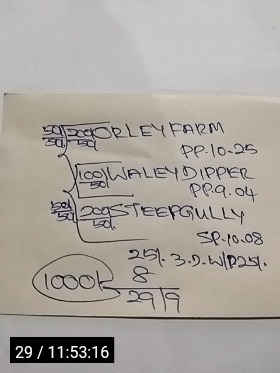 50/50 200/50 ORLEY FARM
PP.10-25
100/50 WALEY DIPPER
PP.9.04
50/50 200/50 STEEPGULLY
SP.10.08
25/. 3.D.W/P25/.
1000/ 8
29/9
29 / 11:53:16